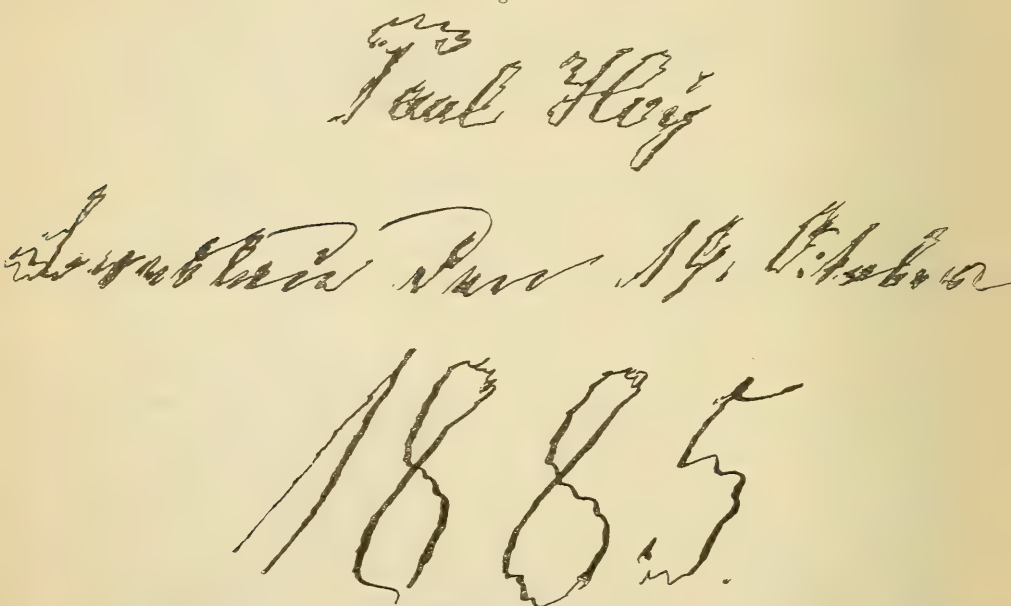 Paul Hoÿ
den 19. Oktober
1885.